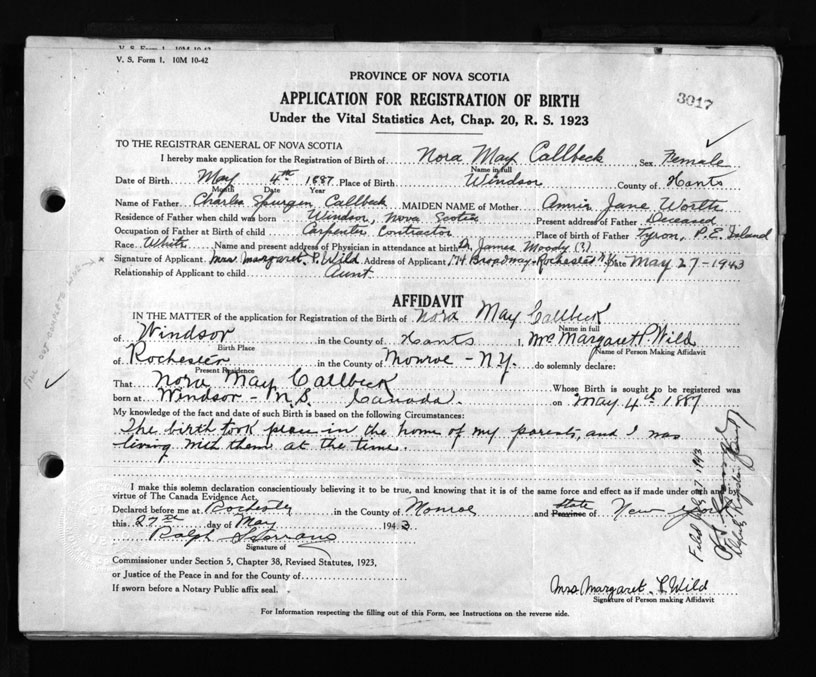 V. S. Form 1. 10M 10-42
V. S. Form 1. 10M 10-42
PROVINCE OF NOVA SCOTIA
3017
APPLICATION FOR REGISTRATION OF BIRTH
Under the Vital Statistics Act, Chap. 20, R. S. 1923
TO THE REGISTRAR GENERAL OF NOVA SCOTIA
I hereby make application for the Registration of Birth of Nora May Callbeck, Sex Female
Name in full
Date of Birth May 4th 1887 Place of Birth Windsor County of Hants
Month Date Year
Name of Father Charles Spurgen Callbeck MAIDEN NAME of Mother Annie Jane Worth
Residence of Father when child was born Windsor, Nova Scotia Present address of Father Deceased
Occupation of Father at Birth of child Carpenter Contractor Place of birth of Father Tyron, P.E. Island
Race White Name and present address of Physician in attendance at birth Dr. James Moody (?)
Signature of Applicant Mrs. Margaret P. Wild Address of Applicant 174 Broadway-Rochester N.Y. Date May 27-1943
Relationship of Applicant to child Aunt.
AFFIDAVIT
IN THE MATTER of the application for Registration of the Birth of Nora May Callbeck
Name in full
of Windsor in the County of Hants I, Mrs Margaret P. Wild
Birth Place Name of Person Making Affidavit
of Rochester in the County of Monroe - N.Y. do solemnly declare:
Present Residence
That Nora May Callbeck Whose Birth is sought to be registered was
born at Windsor - N.S. Canada. on May 4th 1887
My knowledge of the fact and date of such Birth is based on the following Circumstances:
The birth took place in the home of my parents, and I was
living with them at the time.
I make this solemn declaration conscientiously believing it to be true, and knowing that it is of the same force and effect as if made under oath and by
virtue of The Canada Evidence Act.
Declared before me at Rochester in the County of Monroe and state Province of New York
this 27th day of May 1943
Ralph
Signature of
Commissioner under Section 5, Chapter 38, Revised Statutes, 1923,
or Justice of the Peace in and for the County of
If sworn before a Notary Public affix seal.
Mrs Margaret P. Wild
Signature of Person making Affidavit
For Information respecting the filling out of this Form, see Instructions on the reverse side.
Filed 7, 1943
Deputy Registrar